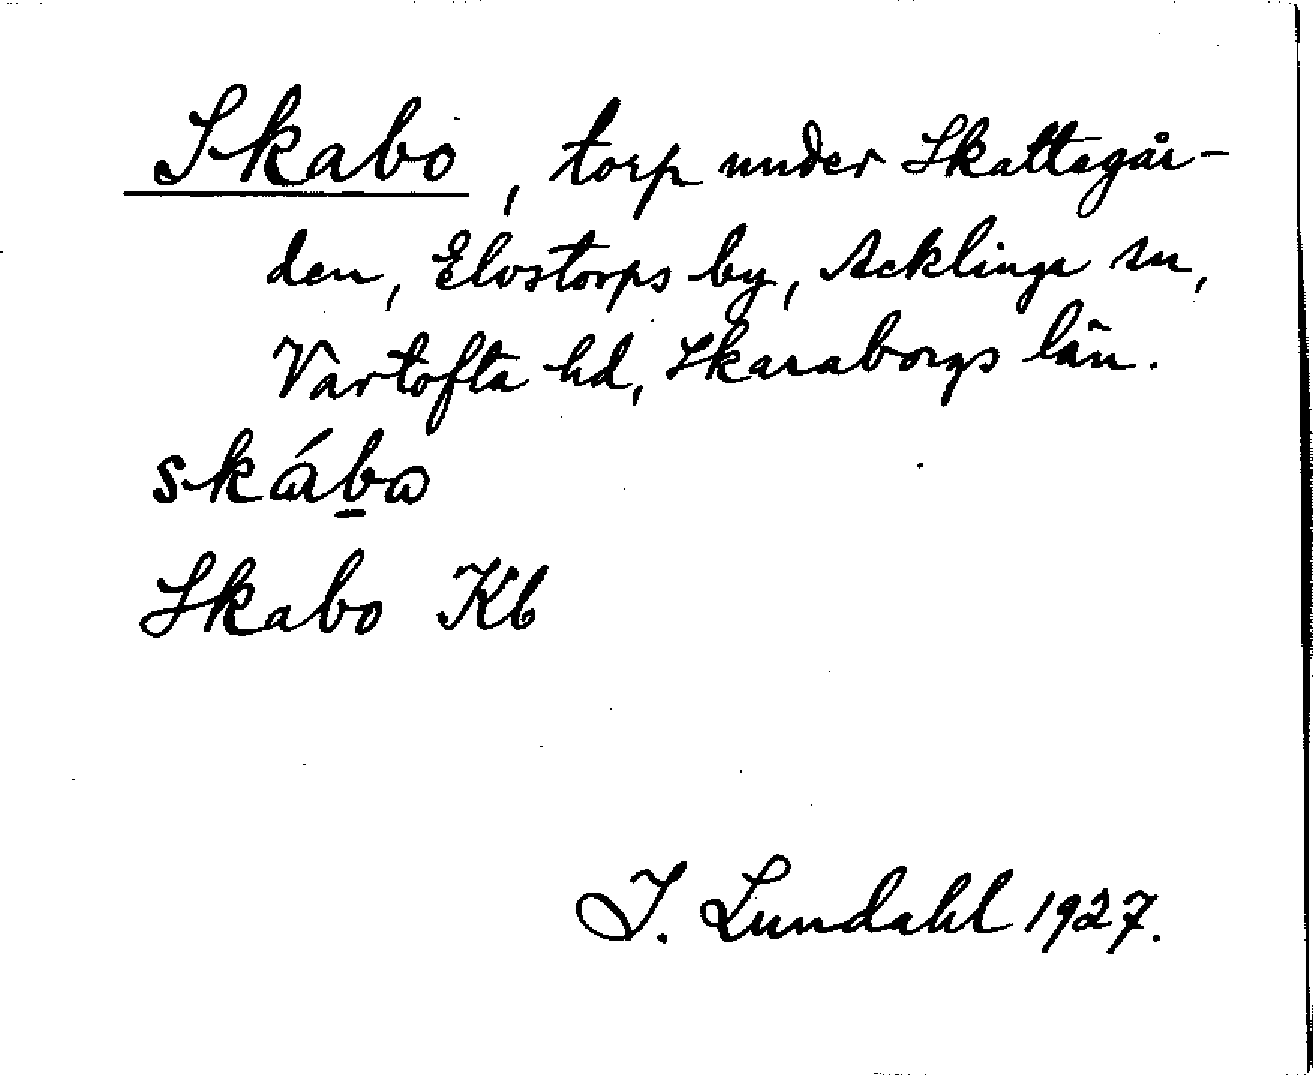 Skabo, torp under Skattegår-
den, Elvstorps by, Acklinga sn,
Vartofta hd, Skaraborgs län.
skába
Skabo Kb
I. Lundahl 1927.